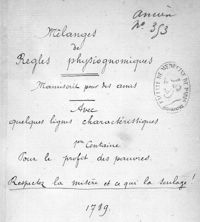 ancien
N° 353
Mélanges
de
Règles physiognomiques
Manuscrit pour des amis
Avec
quelques lignes charactéristiques
par Centaine
Pour le profit des pauvres.
Respectez la misère et ce qui la soulage!
1789.